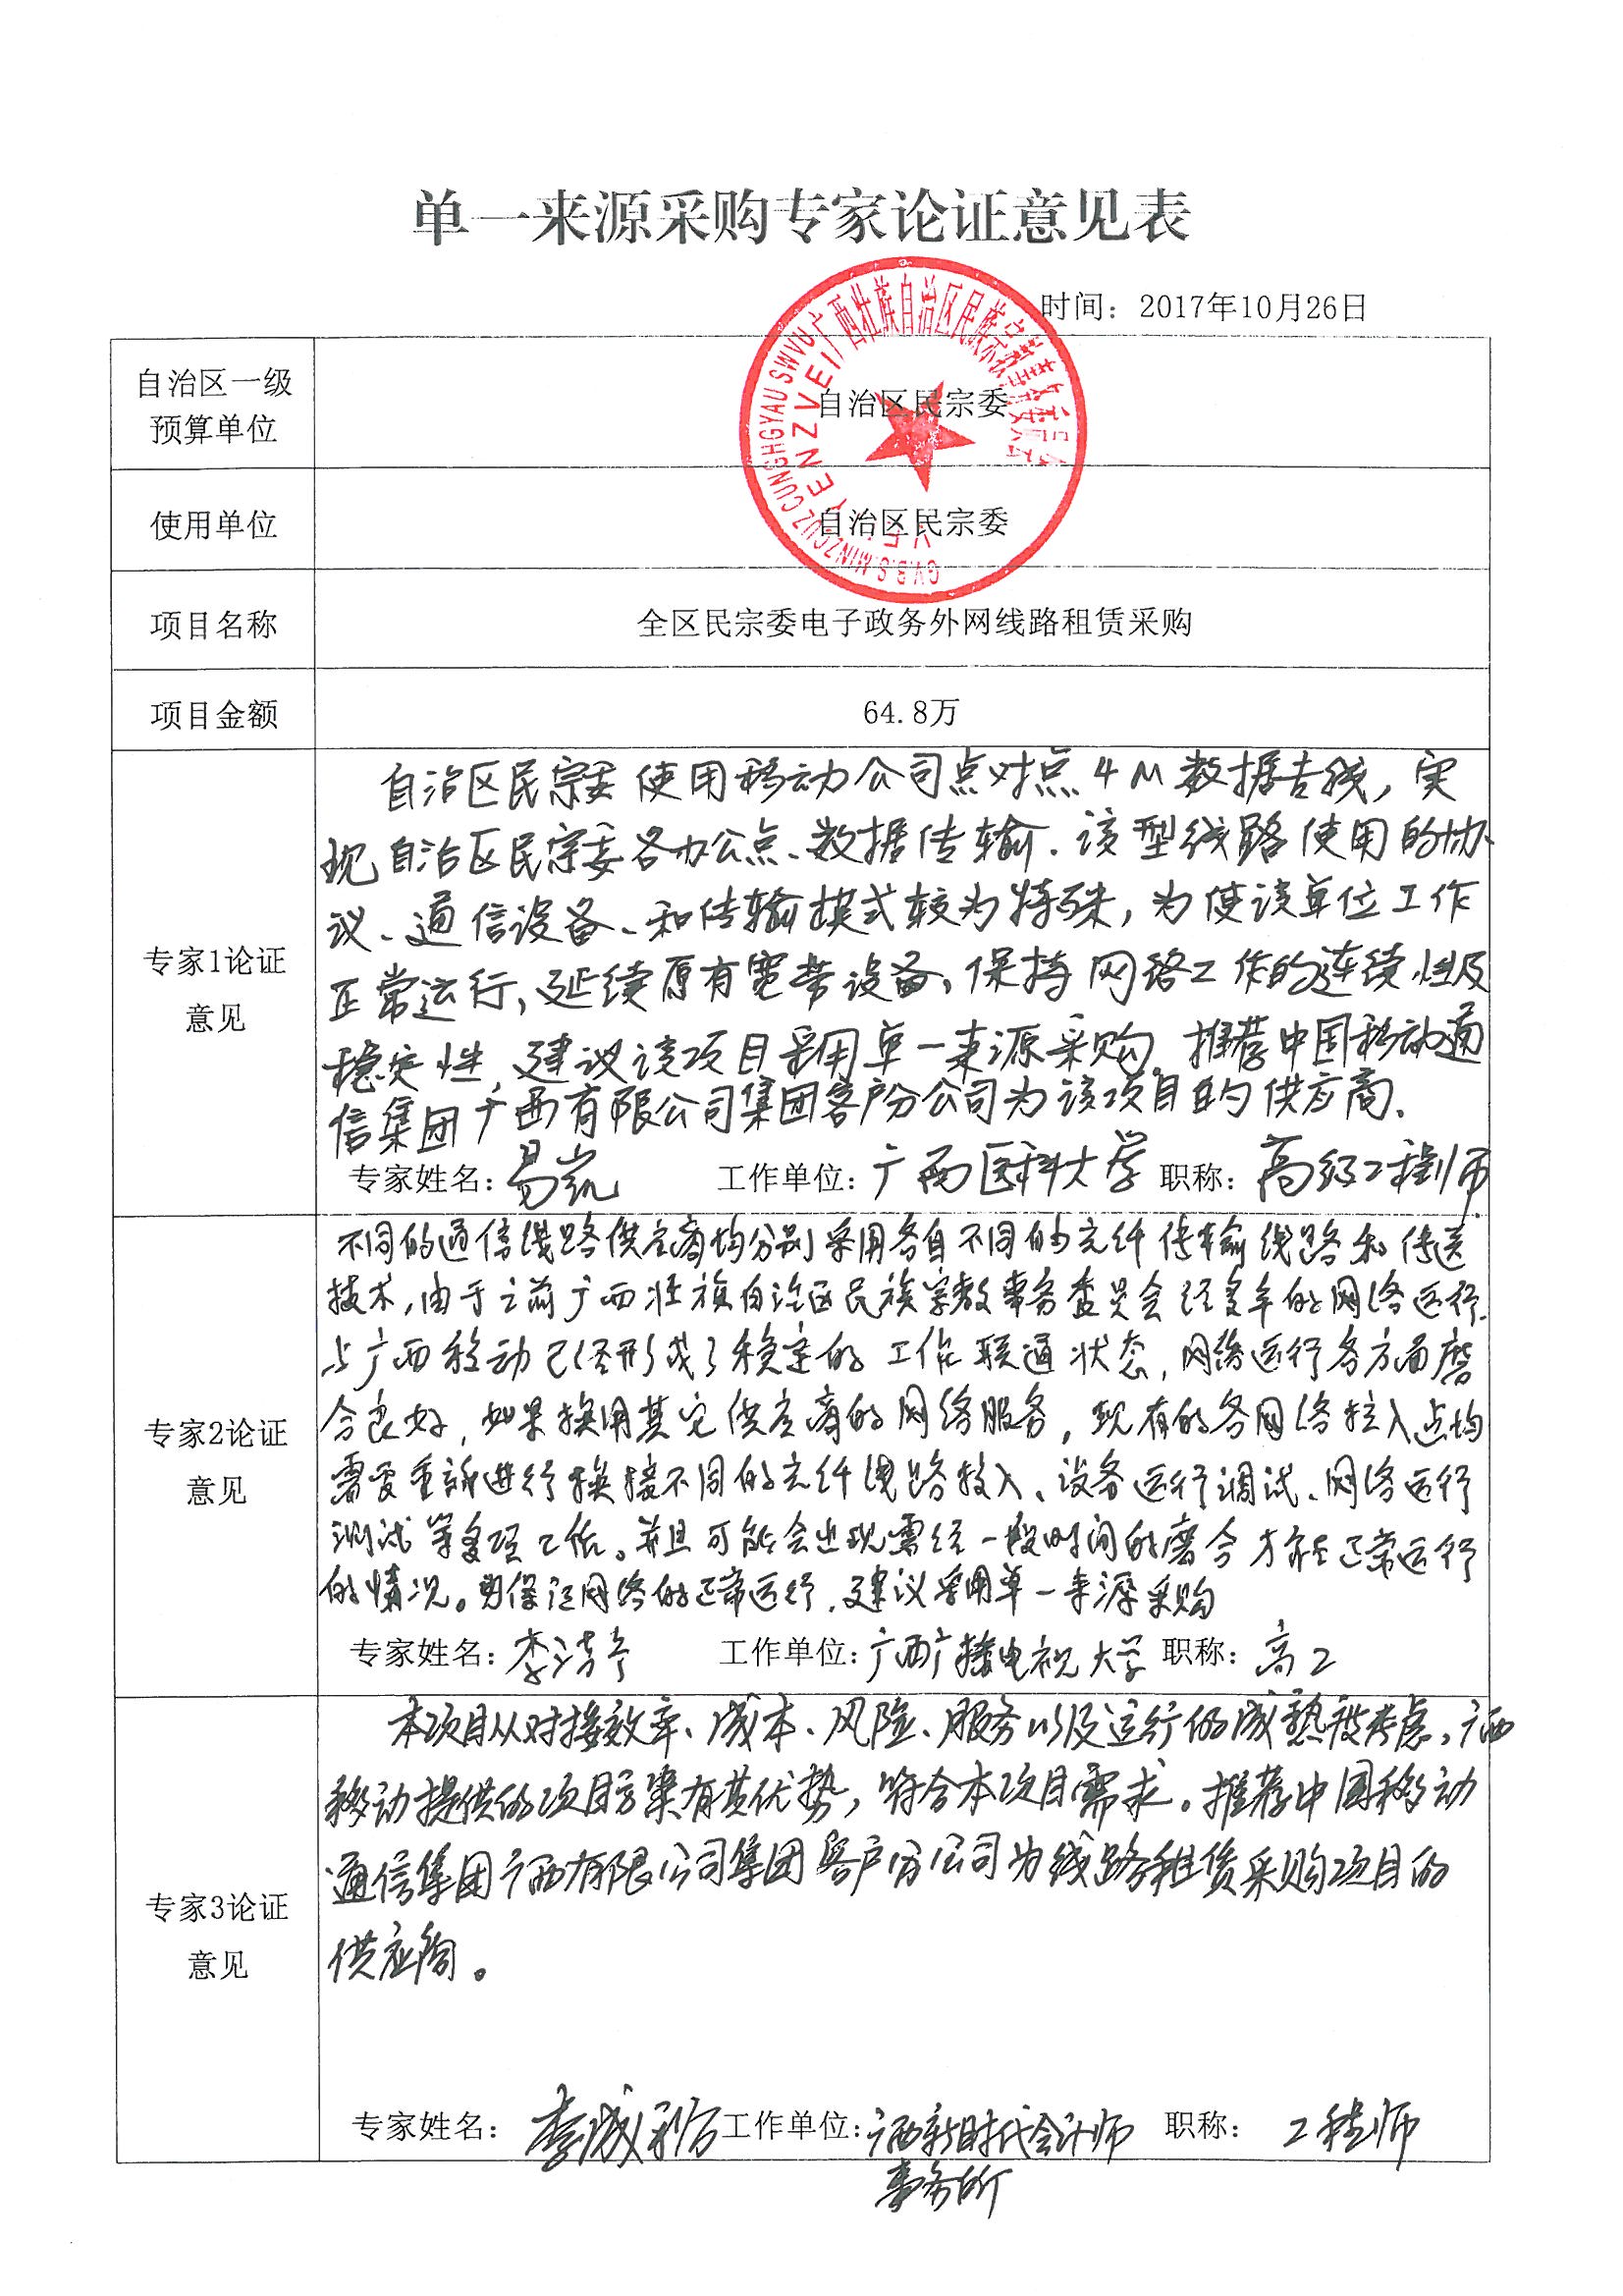 单一来源采购专家论证意见表
时间：2017年10月26日
自治区一级
预算单位
自治区民宗委
使用单位
自治区民宗委
广西壮族自治区民族宗教事务委员会
项目名称
全区民宗委电子政务外网线路租赁采购
项目金额
64.8万
专家1论证
意见
自治区民宗委使用移动公司点对点4M数据专线，实
现自治区民宗委各办公点、数据传输．该型线路使用的协
议、通信设备、和传输模式较为特殊，为使该单位工作
正常运行，延续原有宽带设备，保持网络工作的连续性及
稳定性，建议该项目采用单一来源采购．推荐中国移动通
信集团广西有限公司集团客户分公司为该项目的供应商．
专家姓名：易 工作单位：广西医科大学 职称：高级工程师
专家2论证
意见
不同的通信线路供应商均分别采用各自不同的光纤传输线路和传送
技术，由于之前广西壮族自治区民族宗教事务委员会经多年的网络运行．
与广西移动已经形成了稳定的工作联通状态，网络运行各方面磨
合良好，如果换用其它供应商的网络服务，现有的各网络接入点均
需要重新进行换接不同的光纤线路接入、设备运行调试、网络运行
测试等多项工作。并且可能会出现需经一段时间的磨合才能正常运行
的情况。为保证网络的正常运行，建议采用单一来源采购
专家姓名：李 工作单位：广西广播电视大学 职称：高工
专家3论证
意见
本项目从对接效率、成本、风险、服务以及运行的成熟度考虑，广西
移动提供的项目方案有其优势，符合本项目需求。推荐中国移动
通信集团广西有限公司集团客户分公司为线路租赁采购项目的
供应商。
专家姓名：李成 工作单位：广西新时代会计师 职称：工程师
事务所